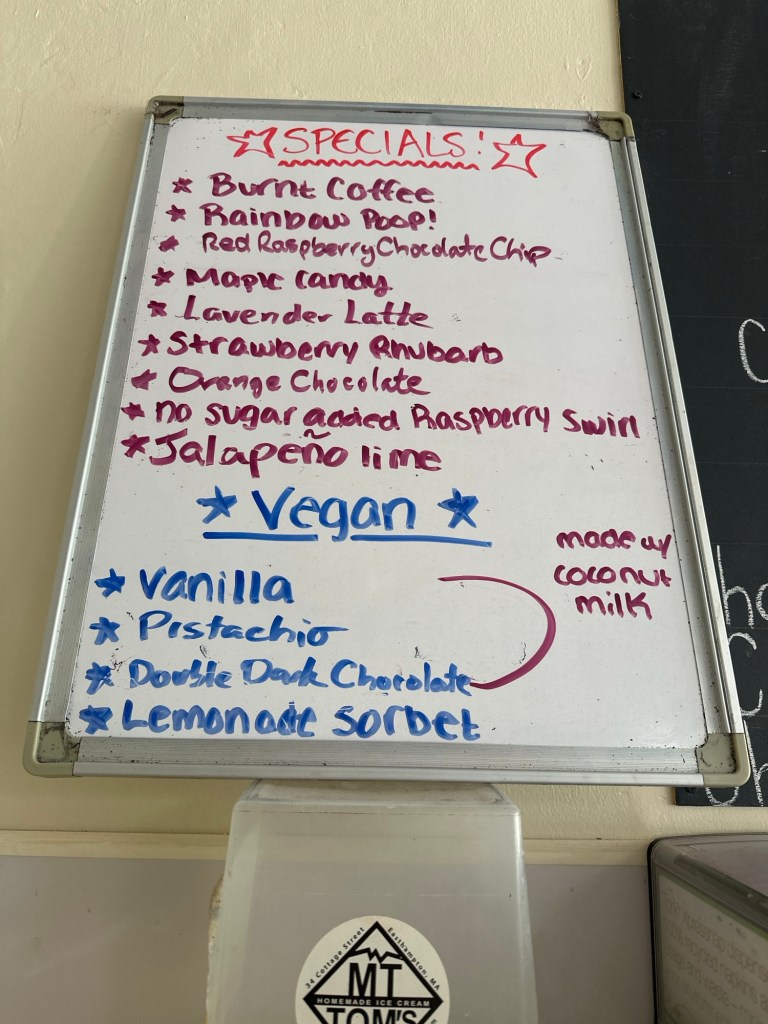 SPECIALS!
* Burnt Coffee
* Rainbow Poop!
* Red Raspberry Chocolate Chip
* Maple Candy
* Lavender Latte
* Strawberry Rhubarb
* Orange Chocolate
* no sugar added Raspberry Swirl
* Jalapeño lime
* Vegan *
made w/
coconut
milk
* Vanilla
* Pistachio
* Double Dark Chocolate
* Lemonade Sorbet
34 Cottage Street Easthampton, MA
MT
HOMEMADE ICE CREAM
TOM'S